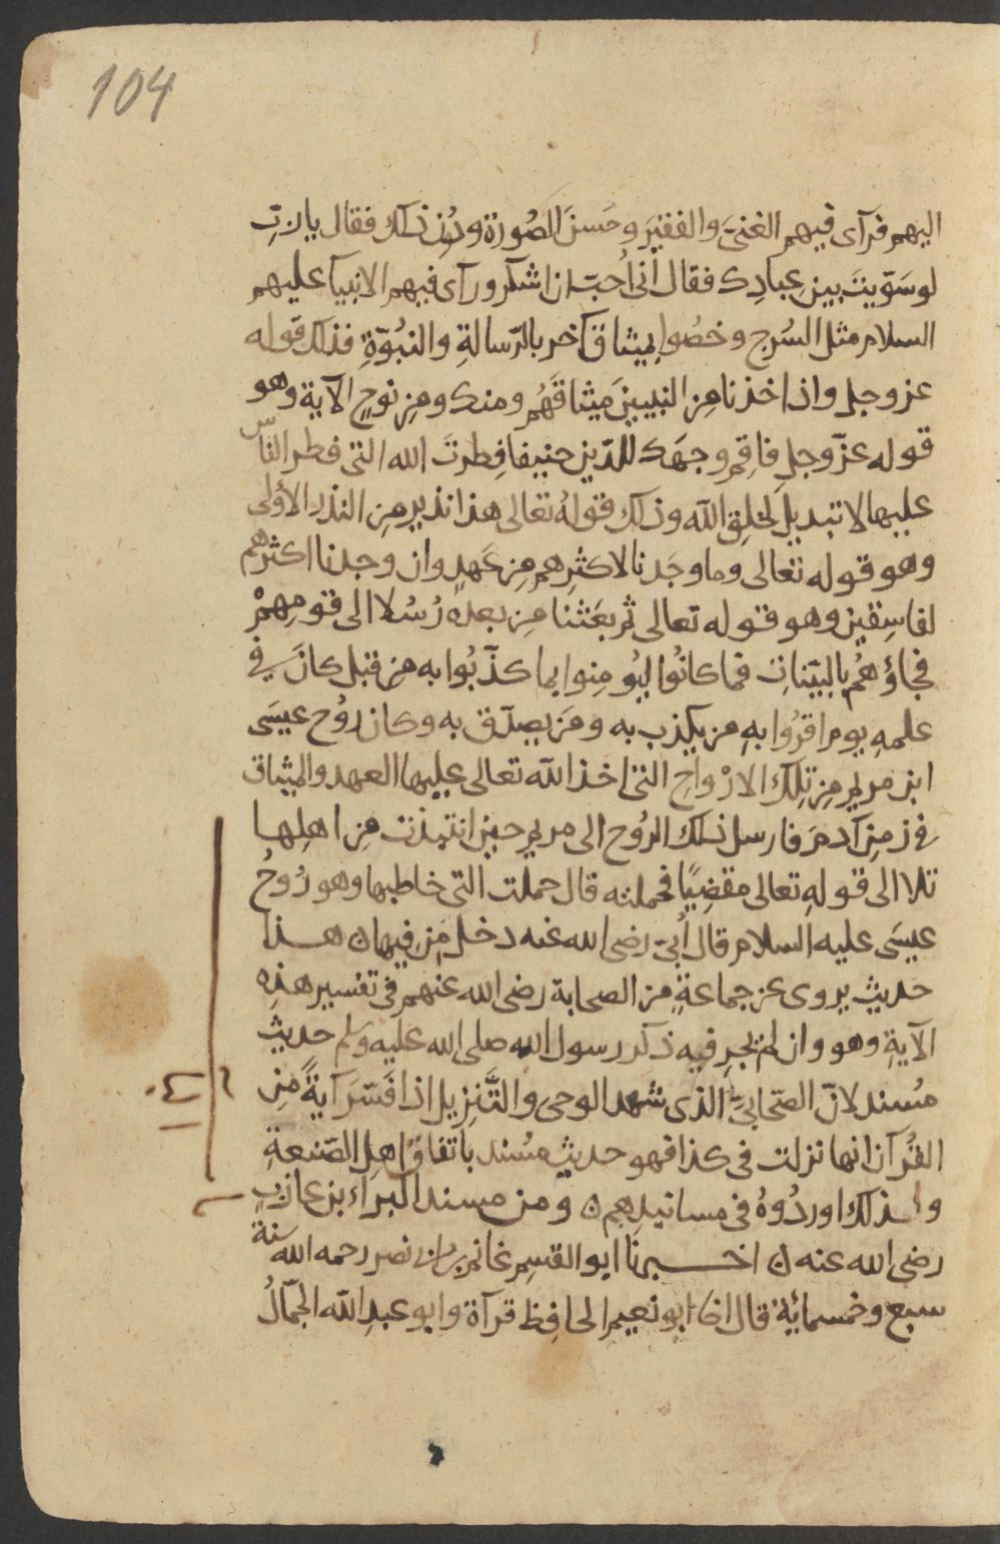 104
اليهم فرآى فيهم الغنىَّ والفقيرَ وحَسنَ الصُورةِ ودُونَ ذلك فقال يا ربِّ
لو سَوّيتَ بين عِبادِك فقال انى اُحبّ ان اشكر ورآى فيهم الانبيآ عليهم
السلام مثل السُرج وخصُوا بميثاق آخر بالرّسالةِ والنبُوّةِ فذلك قوله
عز وجل واذ اخذنا مِن النبيينَ ميثاقَهُم ومنك ومِن نوحٍ الآية وهو
قوله عزّ وجل فاقِم وجهَك للدّين حنيفا فِطرتَ الله التى فطر الناس
عليها لا تبديلَ لخلقِ الله وذلك قولهُ تعالى هذا نذير مِن النذر الأولى
وهو قوله تعالى وما وجَدنا لاكثرِهم مِن عَهدٍ وان وجدنا اكثرهم
لفاسِقين وهو قوله تعالى ثم بعَثنا مِن بعدِه رُسُلا الى قومِهِمْ
فجاؤهُم بالبيّناتِ فما كانُوا ليُومِنوا بما كذّبُوا به من قبل كانَ فى
علمهِ يوم اقرُوا بهِ من يكذب به ومَن يصدّق به وكان رُوح عيسَى
ابن مريم مِن تِلك الارْواحِ التى اخذ الله تعالى عليها العهد والميثاق
فى زمنِ آدمَ فارسل ذلك الروُح الى مريم حين انتبذت مِن اهلِها
تلا الى قولهِ تعالى مقضِيًا فحملته قال حملت التى خاطبها وهو رُوحُ
عيسَى عليه السلام قال اُبىّ رضى الله عنه دخل مِن فيها ن هذا
حديث يروى عن جماعةٍ من الصحابة رضى الله عنهم فى تفسير هذِه
الآيةِ وهو وان لم يجرِ فيه ذكر رسول الله صلى الله عليه وسلم حديث
مسند لانّ الصّحابىّ الذى شهد الوحى والتَّنزيل اذا فسَّرَ آيةً مِن
القُرآن انها نزلت فى كذا فهو حديث مسُند باتفاق اهلِ الصّنعةِ
ولذلك اوردُوهُ فى مسانيدِهم ن ومن مسند البرآء بن عازبٍ
رضى الله عنه ن اخـبرنا ابو القسِم غانم بن نصر رحمه الله سَنة
سبع وخمسمائة قال ابو نعيم الحافِظ قرآة وابو عبدِ الله الجمّالُ